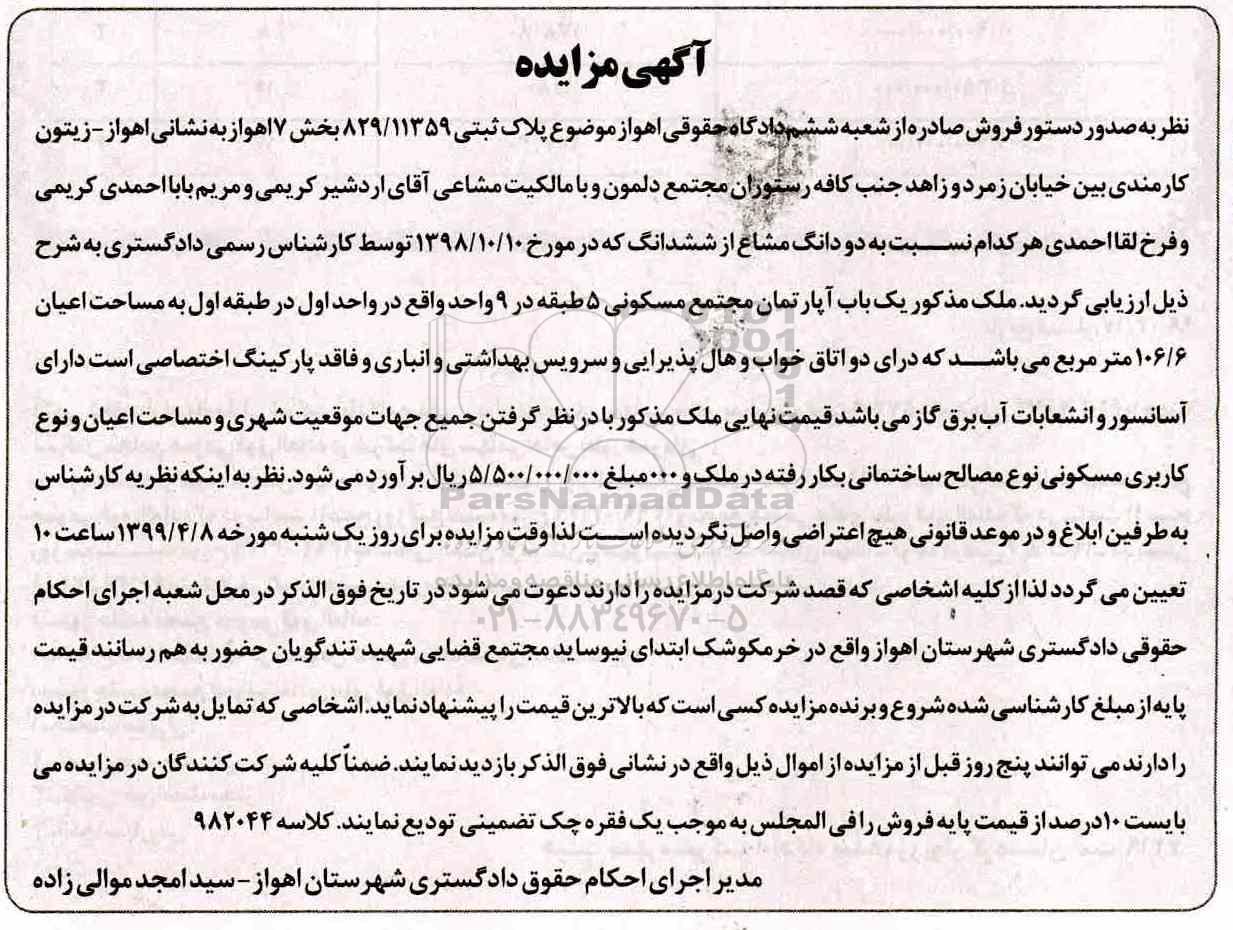 آگهی مزایده
نظر به صدور دستور فروش صادره از شعبه ششم دادگاه حقوقی اهواز موضوع پلاک ثبتی ۸۲۹/۱۱۳۵۹ بخش ۷ اهواز به نشانی اهواز - زیتون
کارمندی بین خیابان زمرد و زاهد جنب کافه رستوران مجتمع دلمون و با مالکیت مشاعی آقای اردشیر کریمی و مریم بابا احمدی کریمی
و فرخ لقا احمدی هر کدام نسبت به دو دانگ مشاع از ششدانگ که در مورخ ۱۳۹۸/۱۰/۱۰ توسط کارشناس رسمی دادگستری به شرح
ذیل ارزیابی گردید. ملک مذکور یک باب آپارتمان مجتمع مسکونی ۵ طبقه در ۹ واحد واقع در واحد اول در طبقه اول به مساحت اعیان
۱۰۶/۶ متر مربع می باشد که درای دو اتاق خواب و هال پذیرایی و سرویس بهداشتی و انباری و فاقد پارکینگ اختصاصی است دارای
آسانسور و انشعابات آب برق گاز می باشد قیمت نهایی ملک مذکور با در نظر گرفتن جمیع جهات موقعیت شهری و مساحت اعیان و نوع
کاربری مسکونی نوع مصالح ساختمانی بکار رفته در ملک و ۰۰۰ مبلغ ۵/۵۰۰/۰۰۰/۰۰۰ ریال برآورد می شود. نظر به اینکه نظریه کارشناس
ParsNamadData
به طرفین ابلاغ و در موعد قانونی هیچ اعتراضی واصل نگردیده است لذا وقت مزایده برای روز یک شنبه مورخه ۱۳۹۹/۴/۸ ساعت ۱۰
تعیین می گردد لذا از کلیه اشخاصی که قصد شرکت در مزایده را دارند دعوت می شود در تاریخ فوق الذکر در محل شعبه اجرای احکام
۰۲۱-۸۸۳۴۹۶۷۰-۵
حقوقی دادگستری شهرستان اهواز واقع در خرمکوشک ابتدای نیوساید مجتمع قضایی شهید تندگویان حضور به هم رسانند قیمت
پایه از مبلغ کارشناسی شده شروع و برنده مزایده کسی است که بالاترین قیمت را پیشنهاد نماید. اشخاصی که تمایل به شرکت در مزایده
را دارند می توانند پنج روز قبل از مزایده از اموال ذیل واقع در نشانی فوق الذکر بازدید نمایند. ضمناً کلیه شرکت کنندگان در مزایده می
بایست ۱۰ درصد از قیمت پایه فروش را فی المجلس به موجب یک فقره چک تضمینی تودیع نمایند. کلاسه ۹۸۲۰۴۴
مدیر اجرای احکام حقوق دادگستری شهرستان اهواز - سید امجد موالی زاده